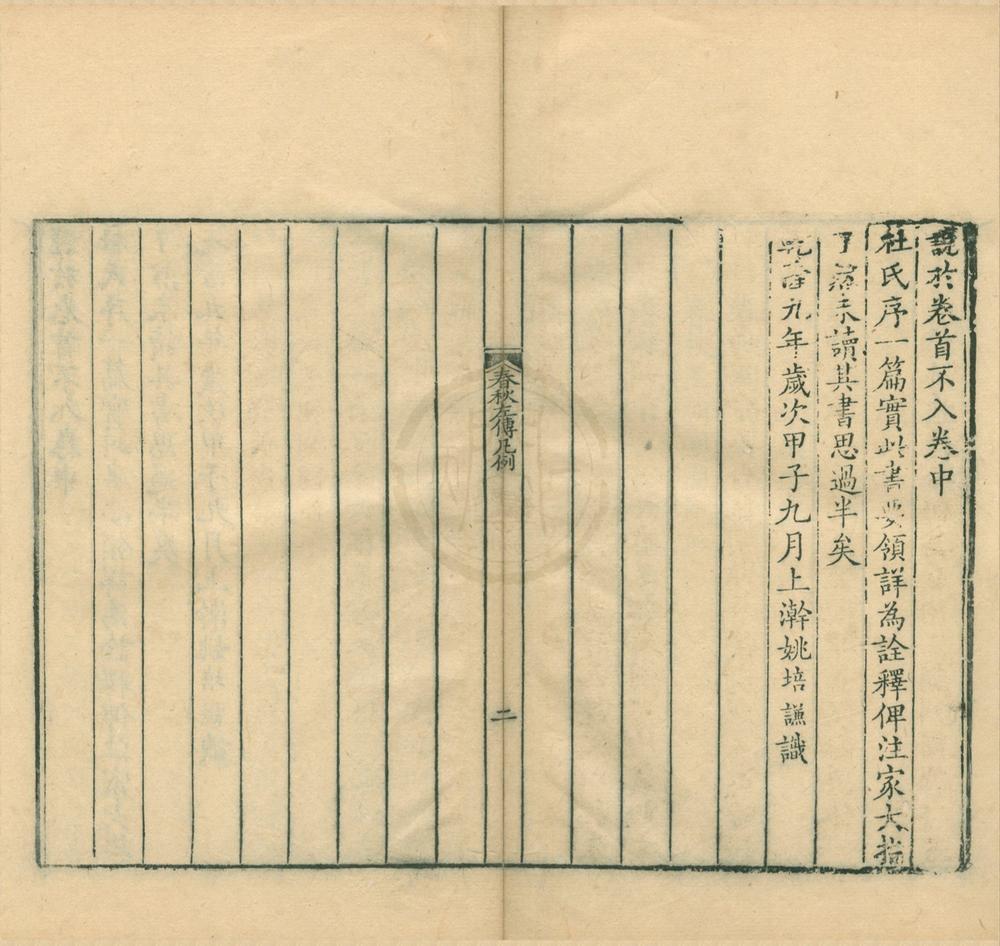 說於卷首不入卷中
杜氏序一篇實此書要領詳為詮釋俾注家大指
了然未讀其書思過半矣
乾隆九年歲次甲子九月上澣姚培謙識
春秋左傳凡例
二